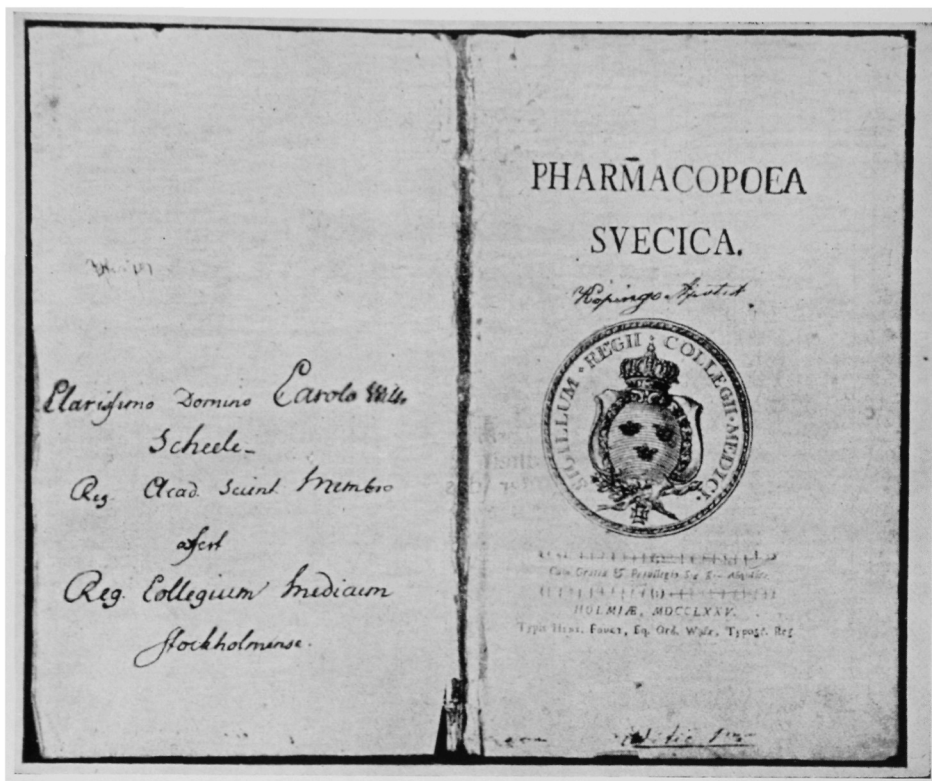 Clarissimo Domino Carolo Wilh.
Scheele
Reg. Acad. Scient. Membro
afert
Reg. Collegium Medicum
Stockholmense.
PHARM̄ACOPOEA
SVECICA.
Köpings Apotek
SIGILLUM · REGII · COLLEGII · MEDICI ·
Cum Gratia & Privilegio
HOLMIÆ, MDCCLXXV.
Typis Henr. Fougt, Eq. Ord. Typogr. Reg.